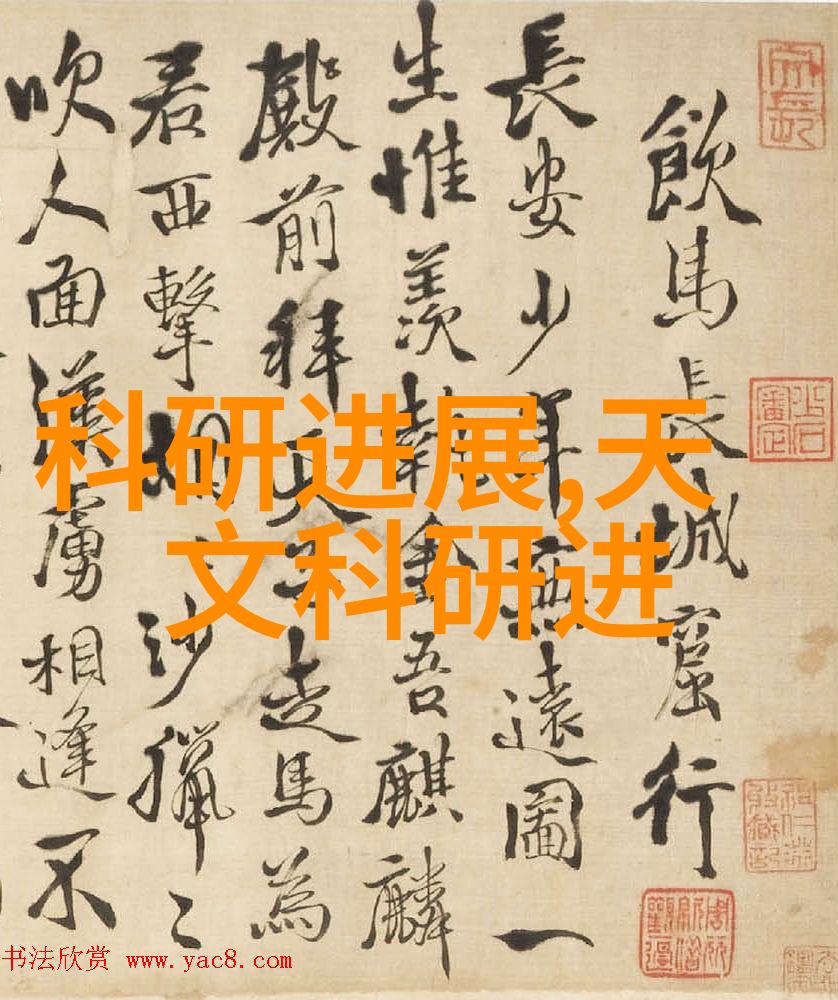 飲馬長城窟行
長安少年無遠圖一
生惟羨執金吾麒麟
殿前拜天子走馬為
君西擊胡〻沙獵〻
吹人面漢虜相逢不
科研进展,天
文科研进
书法欣赏 www.yac8.com